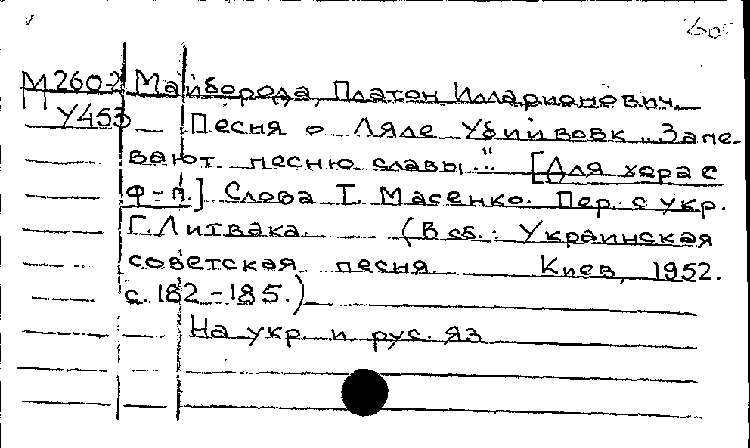 М2602 Майборода, Платон Илларионович.
П
У453 Песня о Ляле Убийвовк „Запе-
вают песню славы." [Для хора с
ф-п.] Слова Т. Масенко. Пер. с укр.
Г. Литвака. (В сб.: Украинская
советская песня Киев, 1952.
с. 182-185.)
На укр. и рус. яз